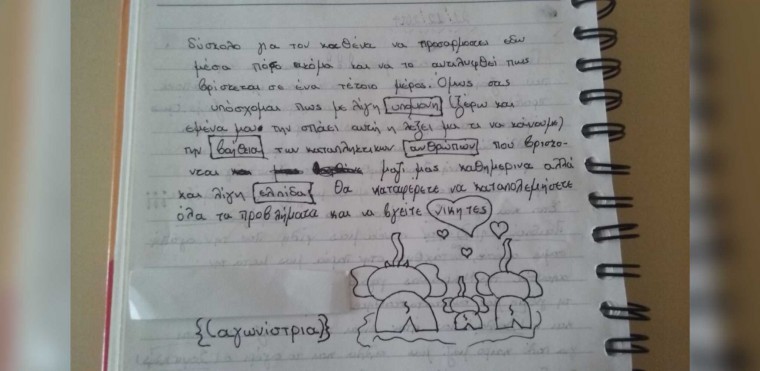 δύσκολο για τον καθένα να προσαρμοστει εδω
μέσα πόσο ακόμα και να το αντιληφθεί πως
βρίσκεται σε ένα τέτοιο μέρος. Όμως σας
υπόσχομαι πως με λίγη υπομονή (ξέρω και
εμένα μου την σπάει αυτή η λέξει μα τι να κάνουμε)
την βοήθεια των καταπληκτικων ανθρώπων που βρισκο-
νται μαζι μας καθημερινα αλλά
και λίγη ελπίδα θα καταφέρετε να καταπολεμήσετε
όλα τα προβλήματα και να βγείτε νικητες
{(αγωνίστρια)}